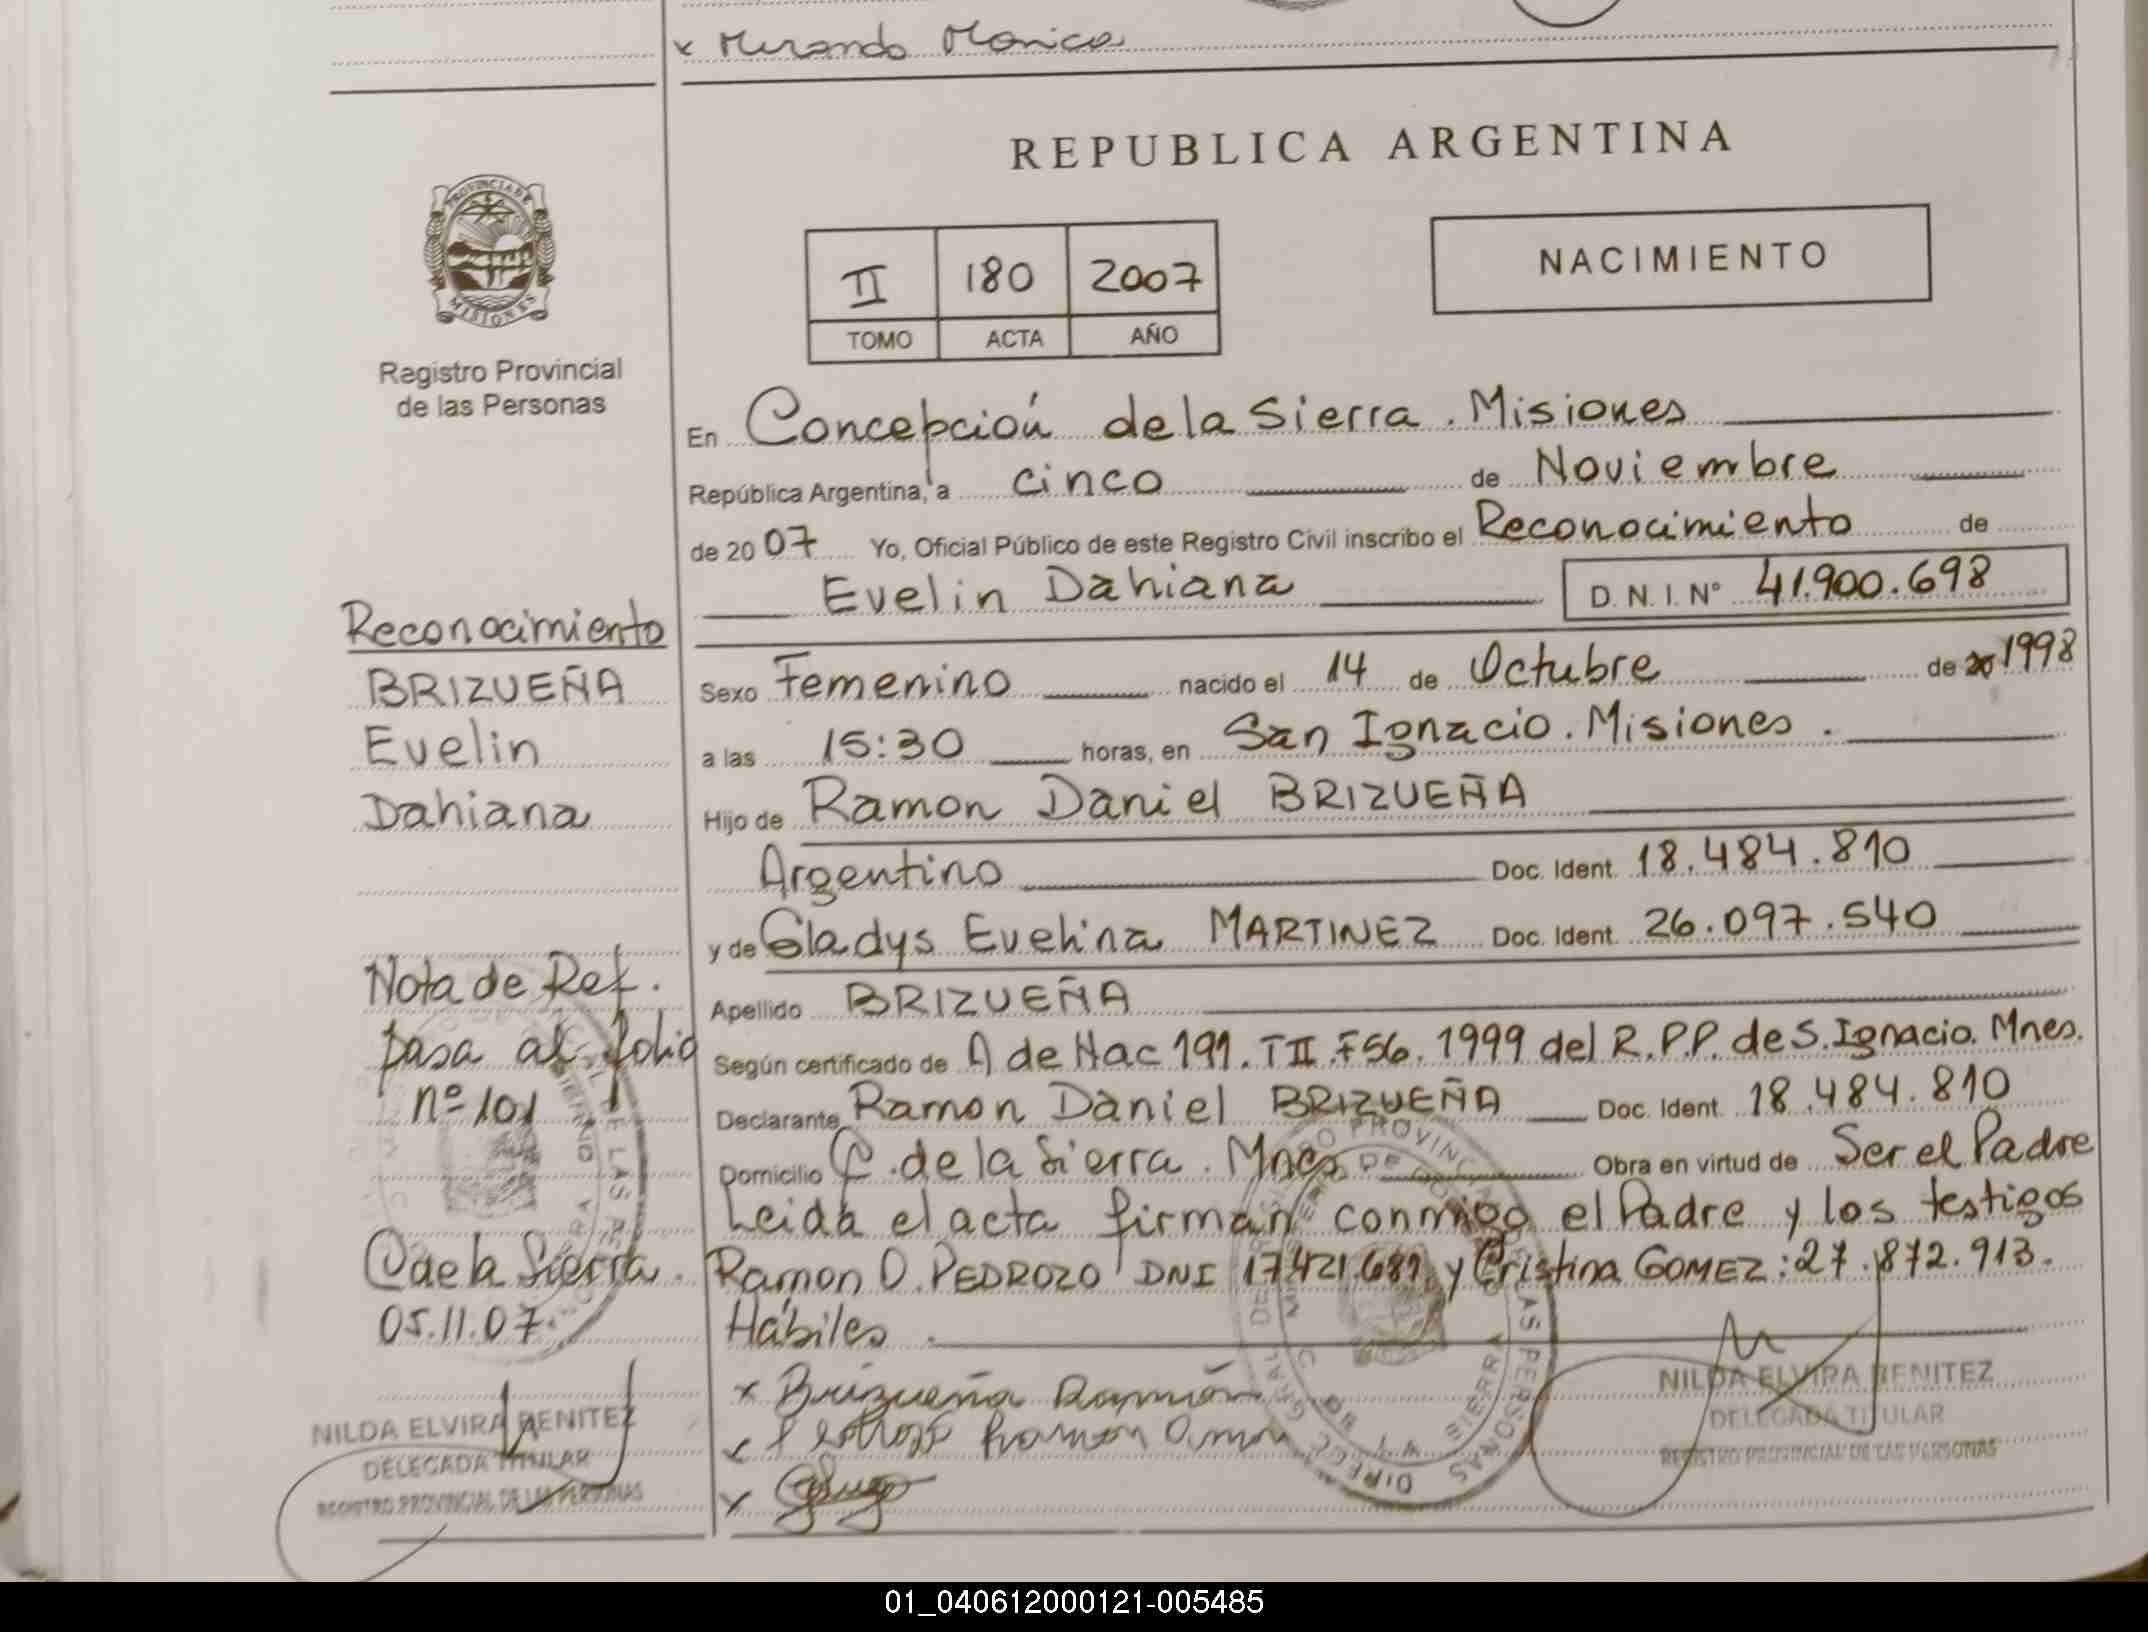 x Mirando Monica
REPUBLICA ARGENTINA
PROVINCIA DE
MISIONES
Registro Provincial
de las Personas
II 180 2007
TOMO ACTA AÑO
NACIMIENTO
En Concepción de la Sierra. Misiones
República Argentina, a cinco de Noviembre
de 2007 Yo, Oficial Público de este Registro Civil inscribo el Reconocimiento de
Evelin Dahiana D.N.I. Nº 41.900.698
Sexo Femenino nacido el 14 de Octubre de 20 1998
a las 15:30 horas, en San Ignacio. Misiones.
Hijo de Ramon Daniel BRIZUEÑA
Argentino Doc. Ident. 18.484.810
y de Gladys Evelina MARTINEZ Doc. Ident. 26.097.540
Apellido BRIZUEÑA
Según certificado de A de Nac 191. TII. F56. 1999 del R.P.P. de S. Ignacio. Mnes.
Declarante Ramon Daniel BRIZUEÑA Doc. Ident. 18.484.810
Domicilio C. de la Sierra. Mnes Obra en virtud de Ser el Padre
Leida el acta firman conmigo el Padre y los testigos
Ramon O. PEDROZO DNI 17.421.681 y Cristina GOMEZ: 27.872.913.
Hábiles.
x Brizueña Ramón
x
x
NILDA ELVIRA BENITEZ
DELEGADA TITULAR
REGISTRO PROVINCIAL DE LAS PERSONAS
Reconocimiento
BRIZUEÑA
Evelin
Dahiana
Nota de Ref.
pasa al folio
nº 101
C de la Sierra.
05.11.07.
NILDA ELVIRA BENITEZ
DELEGADA TITULAR
REGISTRO PROVINCIAL DE LAS PERSONAS
01_040612000121-005485